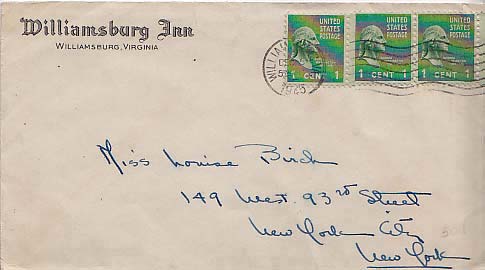 Williamsburg Inn
WILLIAMSBURG, VIRGINIA
UNITED STATES POSTAGE
1 CENT 1
UNITED STATES POSTAGE
1 CENT 1
UNITED STATES POSTAGE
1 CENT 1
Miss Louise Birch
149 West. 93rd Street
New York City
New York